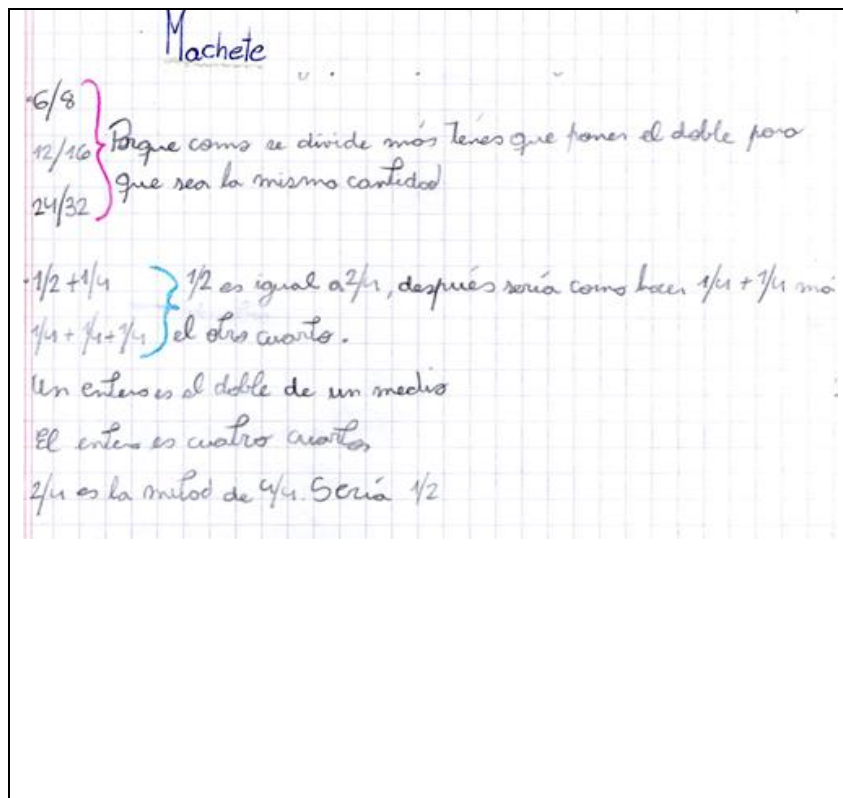 Machete
6/8
12/16 Porque como se divide más tenés que poner el doble para
que sea la misma cantidad
24/32
1/2 + 1/4 1/2 es igual a 2/4, después sería como hacer 1/4 + 1/4 má
1/4 + 1/4 + 1/4 el otro cuarto.
Un entero es el doble de un medio
El entero es cuatro cuartos
2/4 es la mitad de 4/4. Sería 1/2